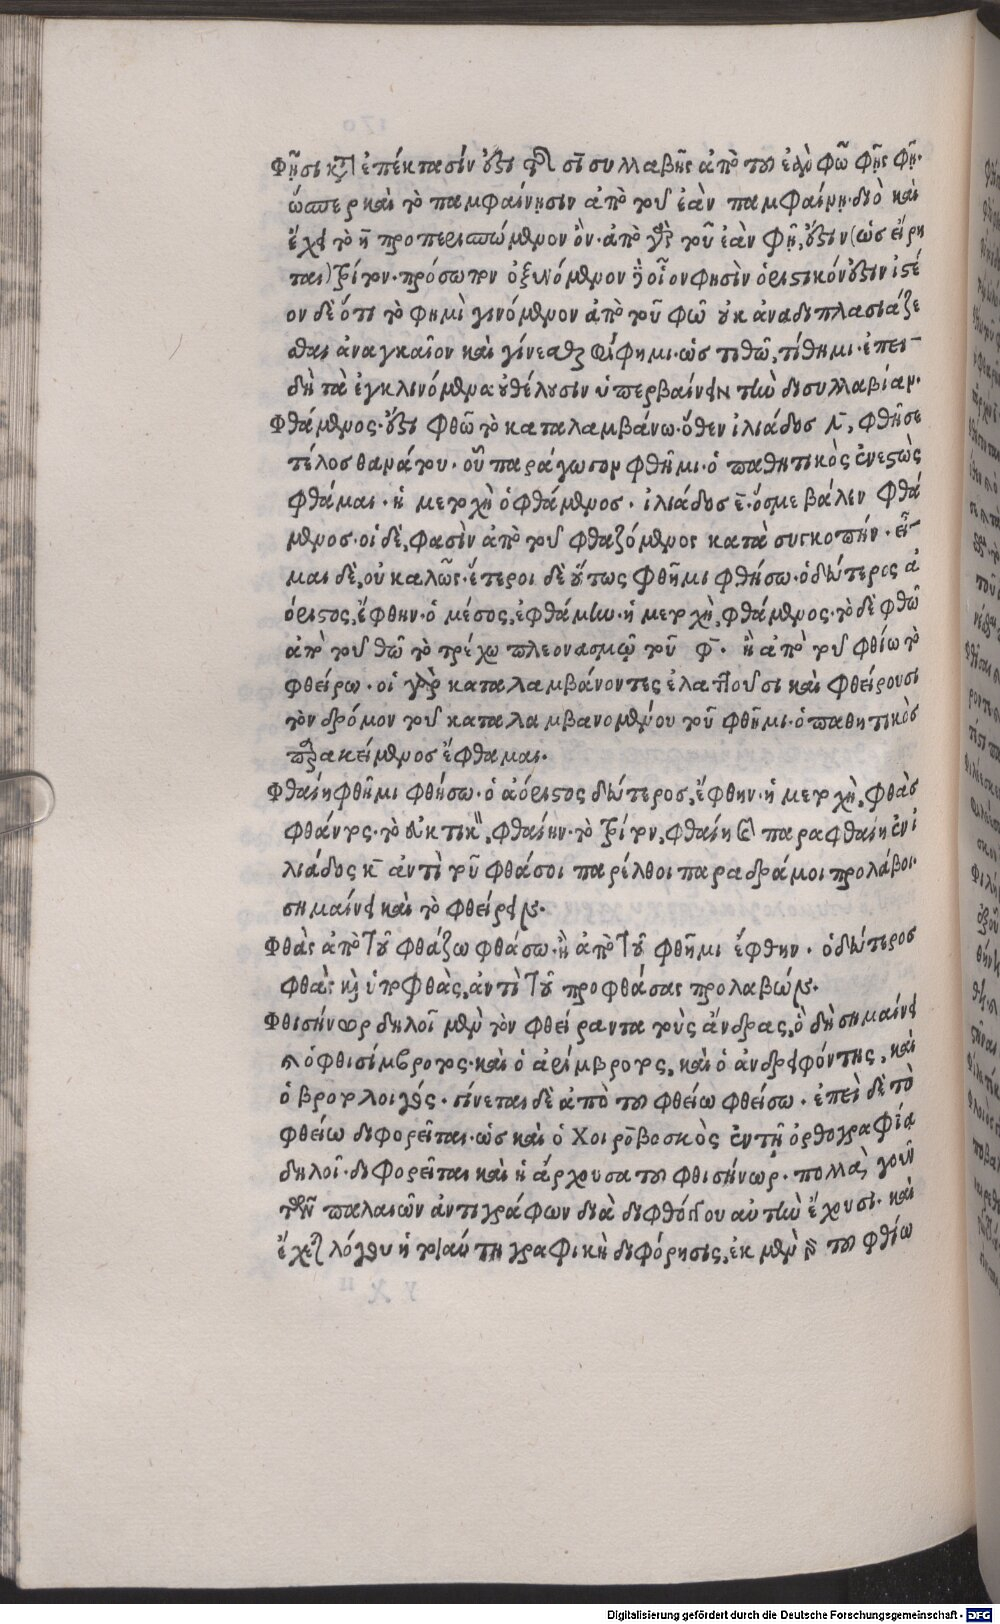 Φῇσι κατ' ἐπέκτασίν ἐστι τῆς σῑ συλλαβῆς ἀπὸ τοῦ ἐὰν φῶ φῇς φῇ.
ὥσπερ καὶ τὸ παμφαίνῃσιν ἀπὸ τοῦ ἐὰν παμφαίνῃ. διὸ καὶ
ἔχει τὸ η̄ προπερισπώμενον ὄν. ἀπὸ γὰρ τοῦ ἐὰν φῇ, ἐστιν (ὡς εἴρη
ται) τρίτον. πρόσωπον ὀξυνόμενον ἢ οἷον φησὶν ὁριστικόν ἐστιν ἰστέ
ον δὲ ὅτι τὸ φημὶ γινόμενον ἀπὸ τοῦ φῶ οὐκ ἀναδιπλασιάζε
σθαι ἀναγκαῖον καὶ γίνεσθαι πίφημι. ὡς τιθῶ, τίθημι. ἐπει-
δὴ τὰ ἐγκλινόμενα οὐ θέλουσιν ὑπερβαίνειν τὴν δισυλλαβίαν.
Φθάμενος. ἔστι φθῶ τὸ καταλαμβάνω. ὅθεν ἰλιάδος λ̄, φθῆσε
τέλος θανάτου. οὗ παράγωγον φθῆμι. ὁ παθητικὸς ἐνεστὼς
φθάμαι. ἡ μετοχὴ ὁ φθάμενος. ἰλιάδος ε̄. ὅς με βάλεν φθά
μενος. οἱ δὲ, φασὶν ἀπὸ τοῦ φθαζόμενος κατὰ συγκοπήν. εἶ-
μαι δὲ, οὐ καλῶς. ἕτεροι δὲ οὕτως φθῆμι φθήσω. ὁ δεύτερος ἀ
όριστος, ἔφθην. ὁ μέσος, ἐφθάμην. ἡ μετοχὴ, φθάμενος. τὸ δὲ φθῶ
ἀπὸ τοῦ θῶ τὸ τρέχω πλεονασμῷ τοῦ φ̄. ἢ ἀπὸ τοῦ φθίω τὸ
φθείρω. οἱ γὰρ καταλαμβάνοντες ἐλαττοῦσι καὶ φθείρουσι
τὸν δρόμον τοῦ καταλαμβανομένου τοῦ φθῆμι. ὁ παθητικὸς
παρακείμενος ἔφθαμαι.
Φθαίη φθῆμι φθήσω. ὁ ἀόριστος δεύτερος, ἔφθην. ἡ μετοχὴ, φθὰς
φθάντος. τὸ εὐκτικὸν, φθαίην. τὸ τρίτον, φθαίη καὶ παραφθαίη ἐν ἰ
λιάδος κ̄ ἀντὶ τοῦ φθάσοι παρέλθοι παραδράμοι προλάβοι.
σημαίνει καὶ τὸ φθείρειν.
Φθὰς ἀπὸ τοῦ φθάζω φθάσω. ἢ ἀπὸ τοῦ φθῆμι ἔφθην. ὁ δεύτερος
φθὰς καὶ ὑποφθὰς, ἀντὶ τοῦ προφθάσας προλαβών.
Φθισήνωρ δηλοῖ μὲν τὸν φθείραντα τοὺς ἄνδρας, ὃ δὴ σημαίνει
ὁ φθισίμβροτος. καὶ ὁ ἀρίμβροτος, καὶ ὁ ἀνδρειφόντης, καὶ
ὁ βροτολοιγός. γίνεται δὲ ἀπὸ τοῦ φθείω φθείσω. ἐπεὶ δὲ τὸ
φθείω διφορεῖται. ὡς καὶ ὁ Χοιρόβοσκὸς ἐν τῇ ὀρθογραφίᾳ
δηλοῖ. διφορεῖται καὶ ἡ ἄρχουσα τοῦ φθισήνωρ. πολλὰ γοῦν
τῶν παλαιῶν ἀντιγράφων διὰ διφθόγγου αὐτὴν ἔχουσι. καὶ
ἔχει λόγου ἡ τοιαύτη γραφικὴ διφόρησις, ἐκ μὲν γὰρ τοῦ φθίω